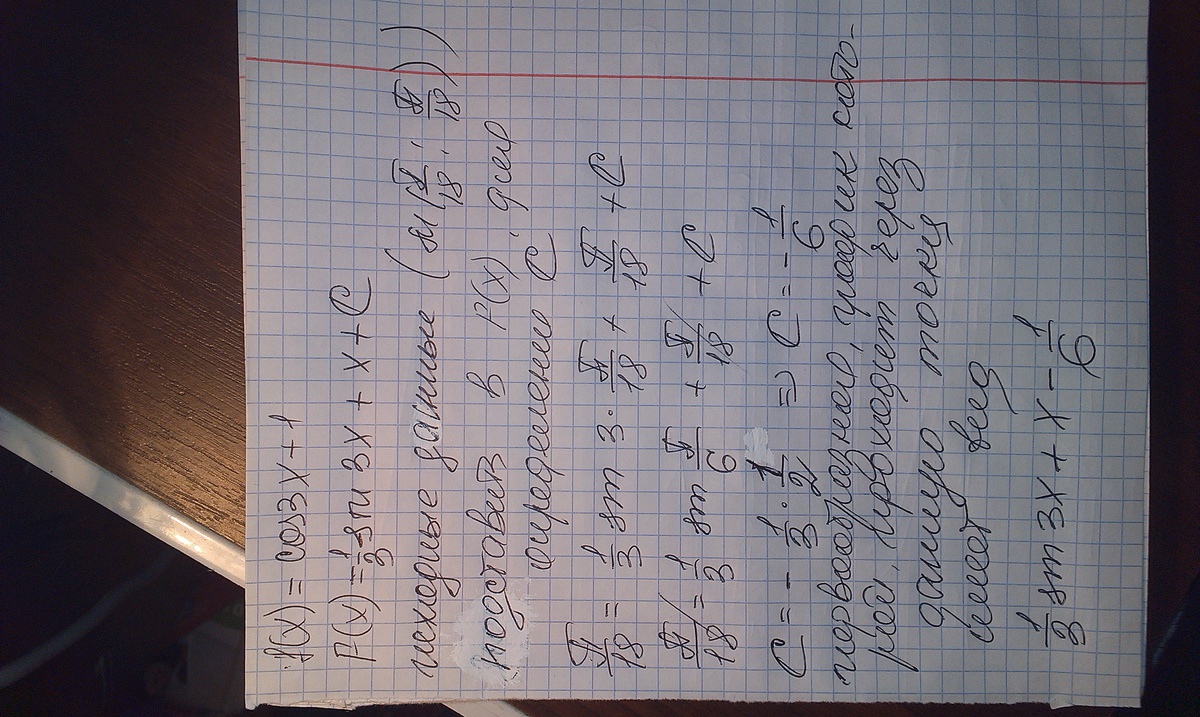 f(x) = cos3x + 1
F(x) = 1/3 sin 3x + x + C
исходные данные (π/18; π/18)
подставить в F(x) для
определения C
π/18 = 1/3 sin 3·π/18 + π/18 + C
π/18 = 1/3 sin π/6 + π/18 + C
C = - 1/3 · 1/2 ⇒ C = - 1/6
первообразная, график кото-
рой, проходит через
данную точку
имеет вид
1/3 sin 3x + x - 1/6